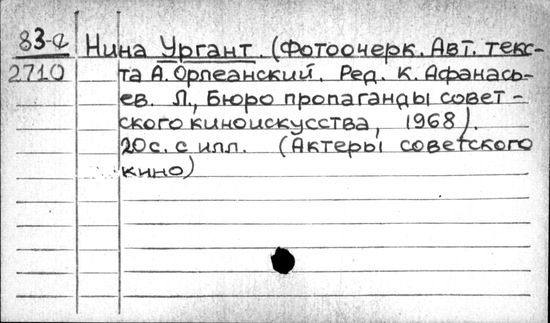 83-2 Нина Ургант. (Фотоочерк. Авт. текс-
2710 та А. Орлеанский. Ред. К. Афанась-
ев. Л., Бюро пропаганды совет-
ского киноискусства, 1968).
20с. с илл. (Актеры советского
кино)